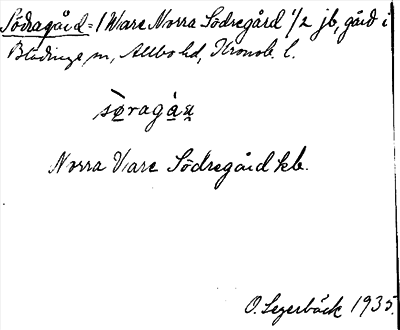 Södragård = 1 Ware Norra Södregård 1/2 jb, gård i
Blädinge sn, Allbo hd, Kronob. l.
søragàn
Norra Vare Södregård kb.
O. Legerbäck 1935.